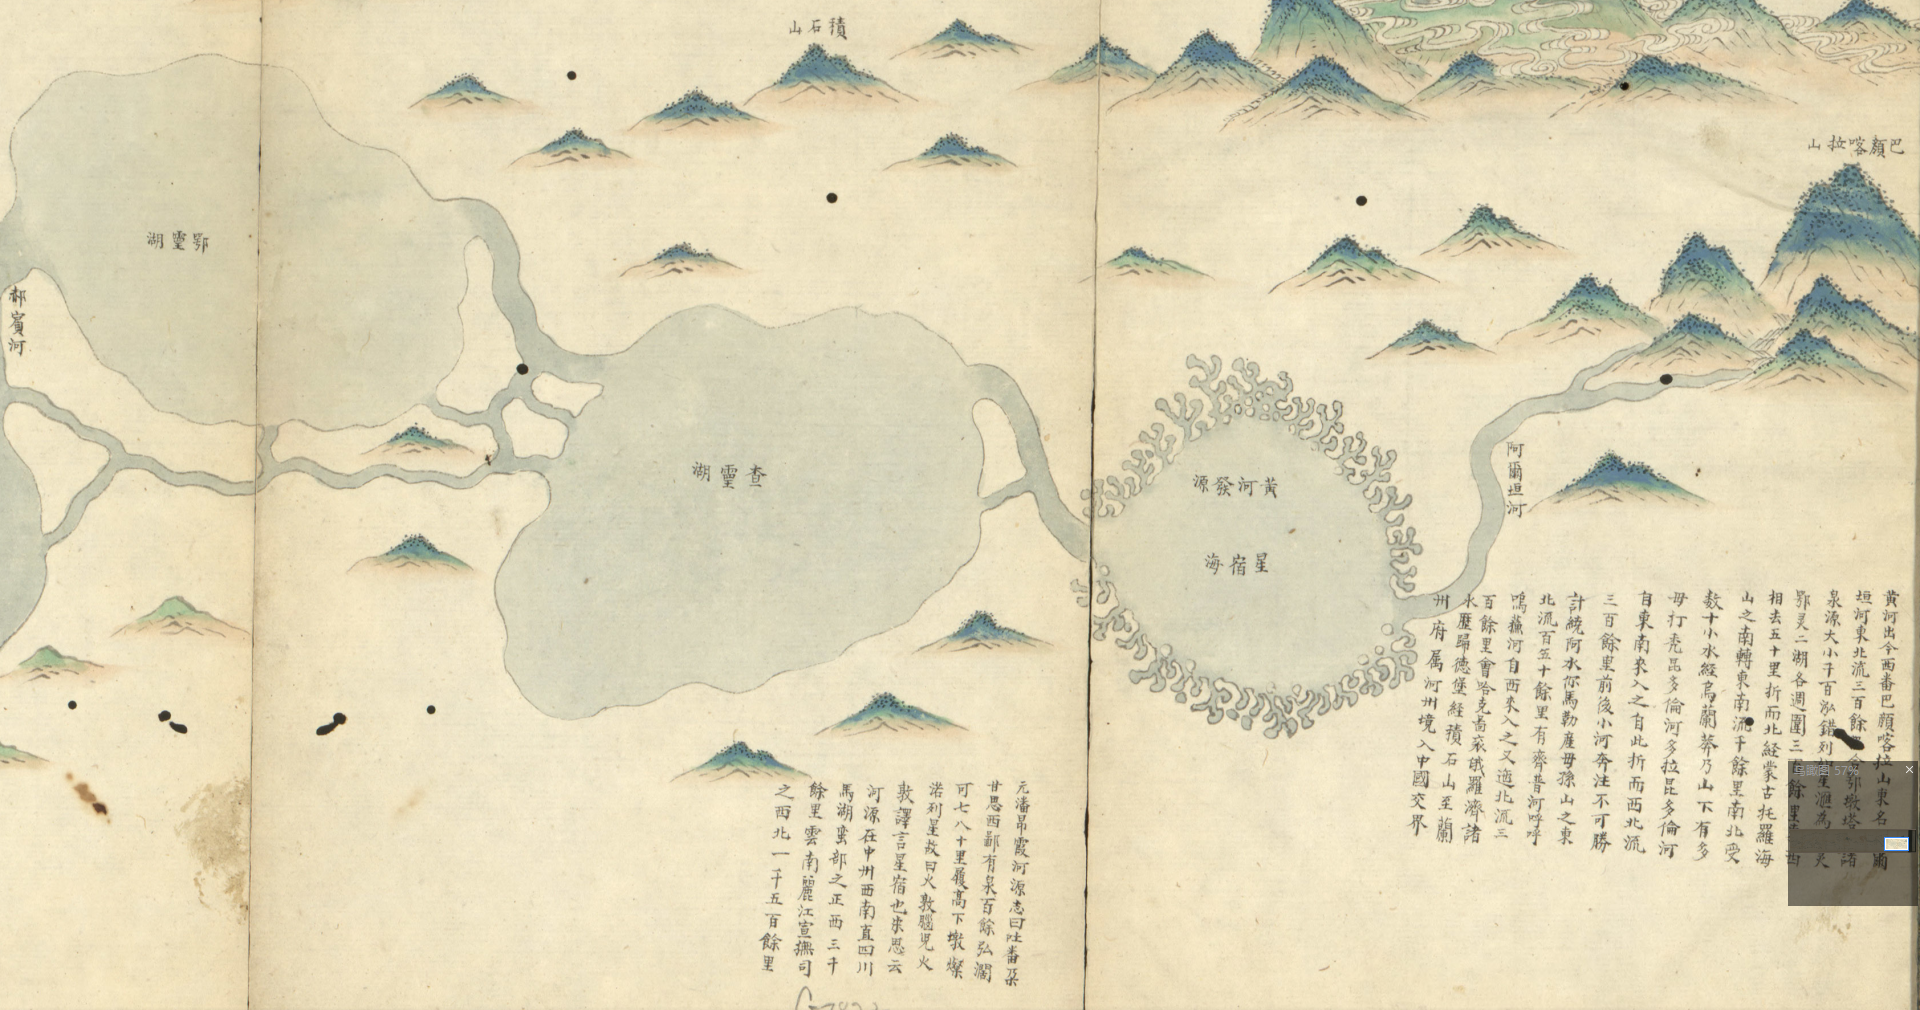 積石山
巴顏喀拉山
鄂靈湖
郝賓河
查靈湖
黃河發源
星宿海
阿爾垣河
黃河出今西畨巴顏喀拉山東名爾
垣河東北流三百餘會鄂墩塔諸
泉源大小千百泓錯列星滙為火
鄂灵二湖各週圍三百餘里西
相去五十里折而北経蒙古托羅海
山之南轉東南流千餘里南北受
数十小水経烏蘭莽乃山下有多
毋打禿昆多倫河多拉昆多倫河
自東南来入之自此折而西北流
三百餘里前後小河奔注不可勝
計繞阿水你馬勒産毋孫山之東
北流百五十餘里有齊普河呼呼
嗚蘓河自西来入之又迤北流三
百餘里會哈克啚衮峨羅濟諸
水歷歸德堡経積石山至蘭
州府属河州境入中國交界
元潘昂霞河源志曰吐畨朶
甘思西鄙有泉百餘弘濶
可七八十里履高下墩燦
渃列星故曰火敦腦児火
敦譯言星宿也朱思云
河源在中州西南直四川
馬湖蛮部之正西三千
餘里雲南麗江宣撫司
之西北一千五百餘里
鸟瞰图 57%